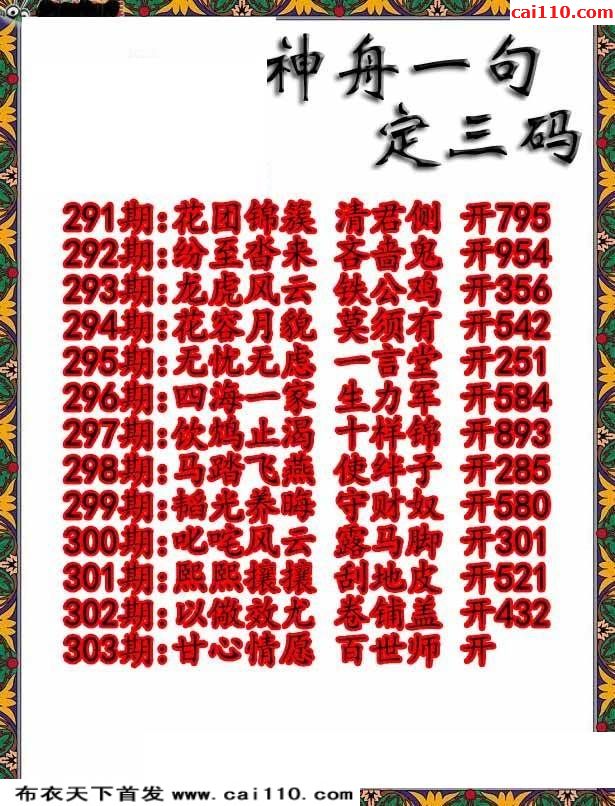 cai110.com
神舟一句
定三码
291期:花团锦簇 清君侧 开795
292期:纷至沓来 吝啬鬼 开954
293期:龙虎风云 铁公鸡 开356
294期:花容月貌 莫须有 开542
295期:无忧无虑 一言堂 开251
296期:四海一家 生力军 开584
297期:饮鸩止渴 十样锦 开893
298期:马踏飞燕 使绊子 开285
299期:韬光养晦 守财奴 开580
300期:叱咤风云 露马脚 开301
301期:熙熙攘攘 刮地皮 开521
302期:以儆效尤 卷铺盖 开432
303期:甘心情愿 百世师 开
布衣天下首发 www.cai110.com